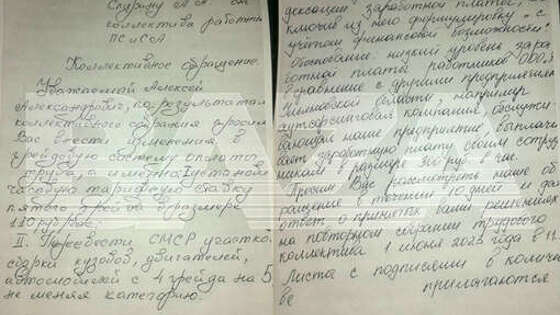 Спурину А.А. от
коллектива работни
ПСиСА
Коллективное обращение.
Уважаемый Алексей
Александрович, по результатам
коллективного собрания просим
Вас внести изменения в
грейдовую систему оплаты
труда, а именно: I установ
часовую тарифную ставку
пятого грейда в размере
110 руб
II. Перевести СМСР участков
сварки кузовов, двигателей,
автомобилей с 4 грейда на 5
не меняя категорию.
дексации заработной платы,
ключив из него формулировку "с
учётом финансовой возможности".
Обоснование: низкий уровень зара
ботной платы работников ООО
в сравнение с другими предприятиями
области, например
аутсорсинговая компания обслужи
вающая наше предприятие, выплачи
вает заработную плату своим сотруд
никам в размере 300 руб. в час.
Просим Вас рассмотреть наше об
ращение в течении 10 дней и да
ответ о принятых вами решениях
на повторном собрании трудового
коллектива 1 июня 2023 года в 11.
Листы с подписями в количес
ве прилагаются